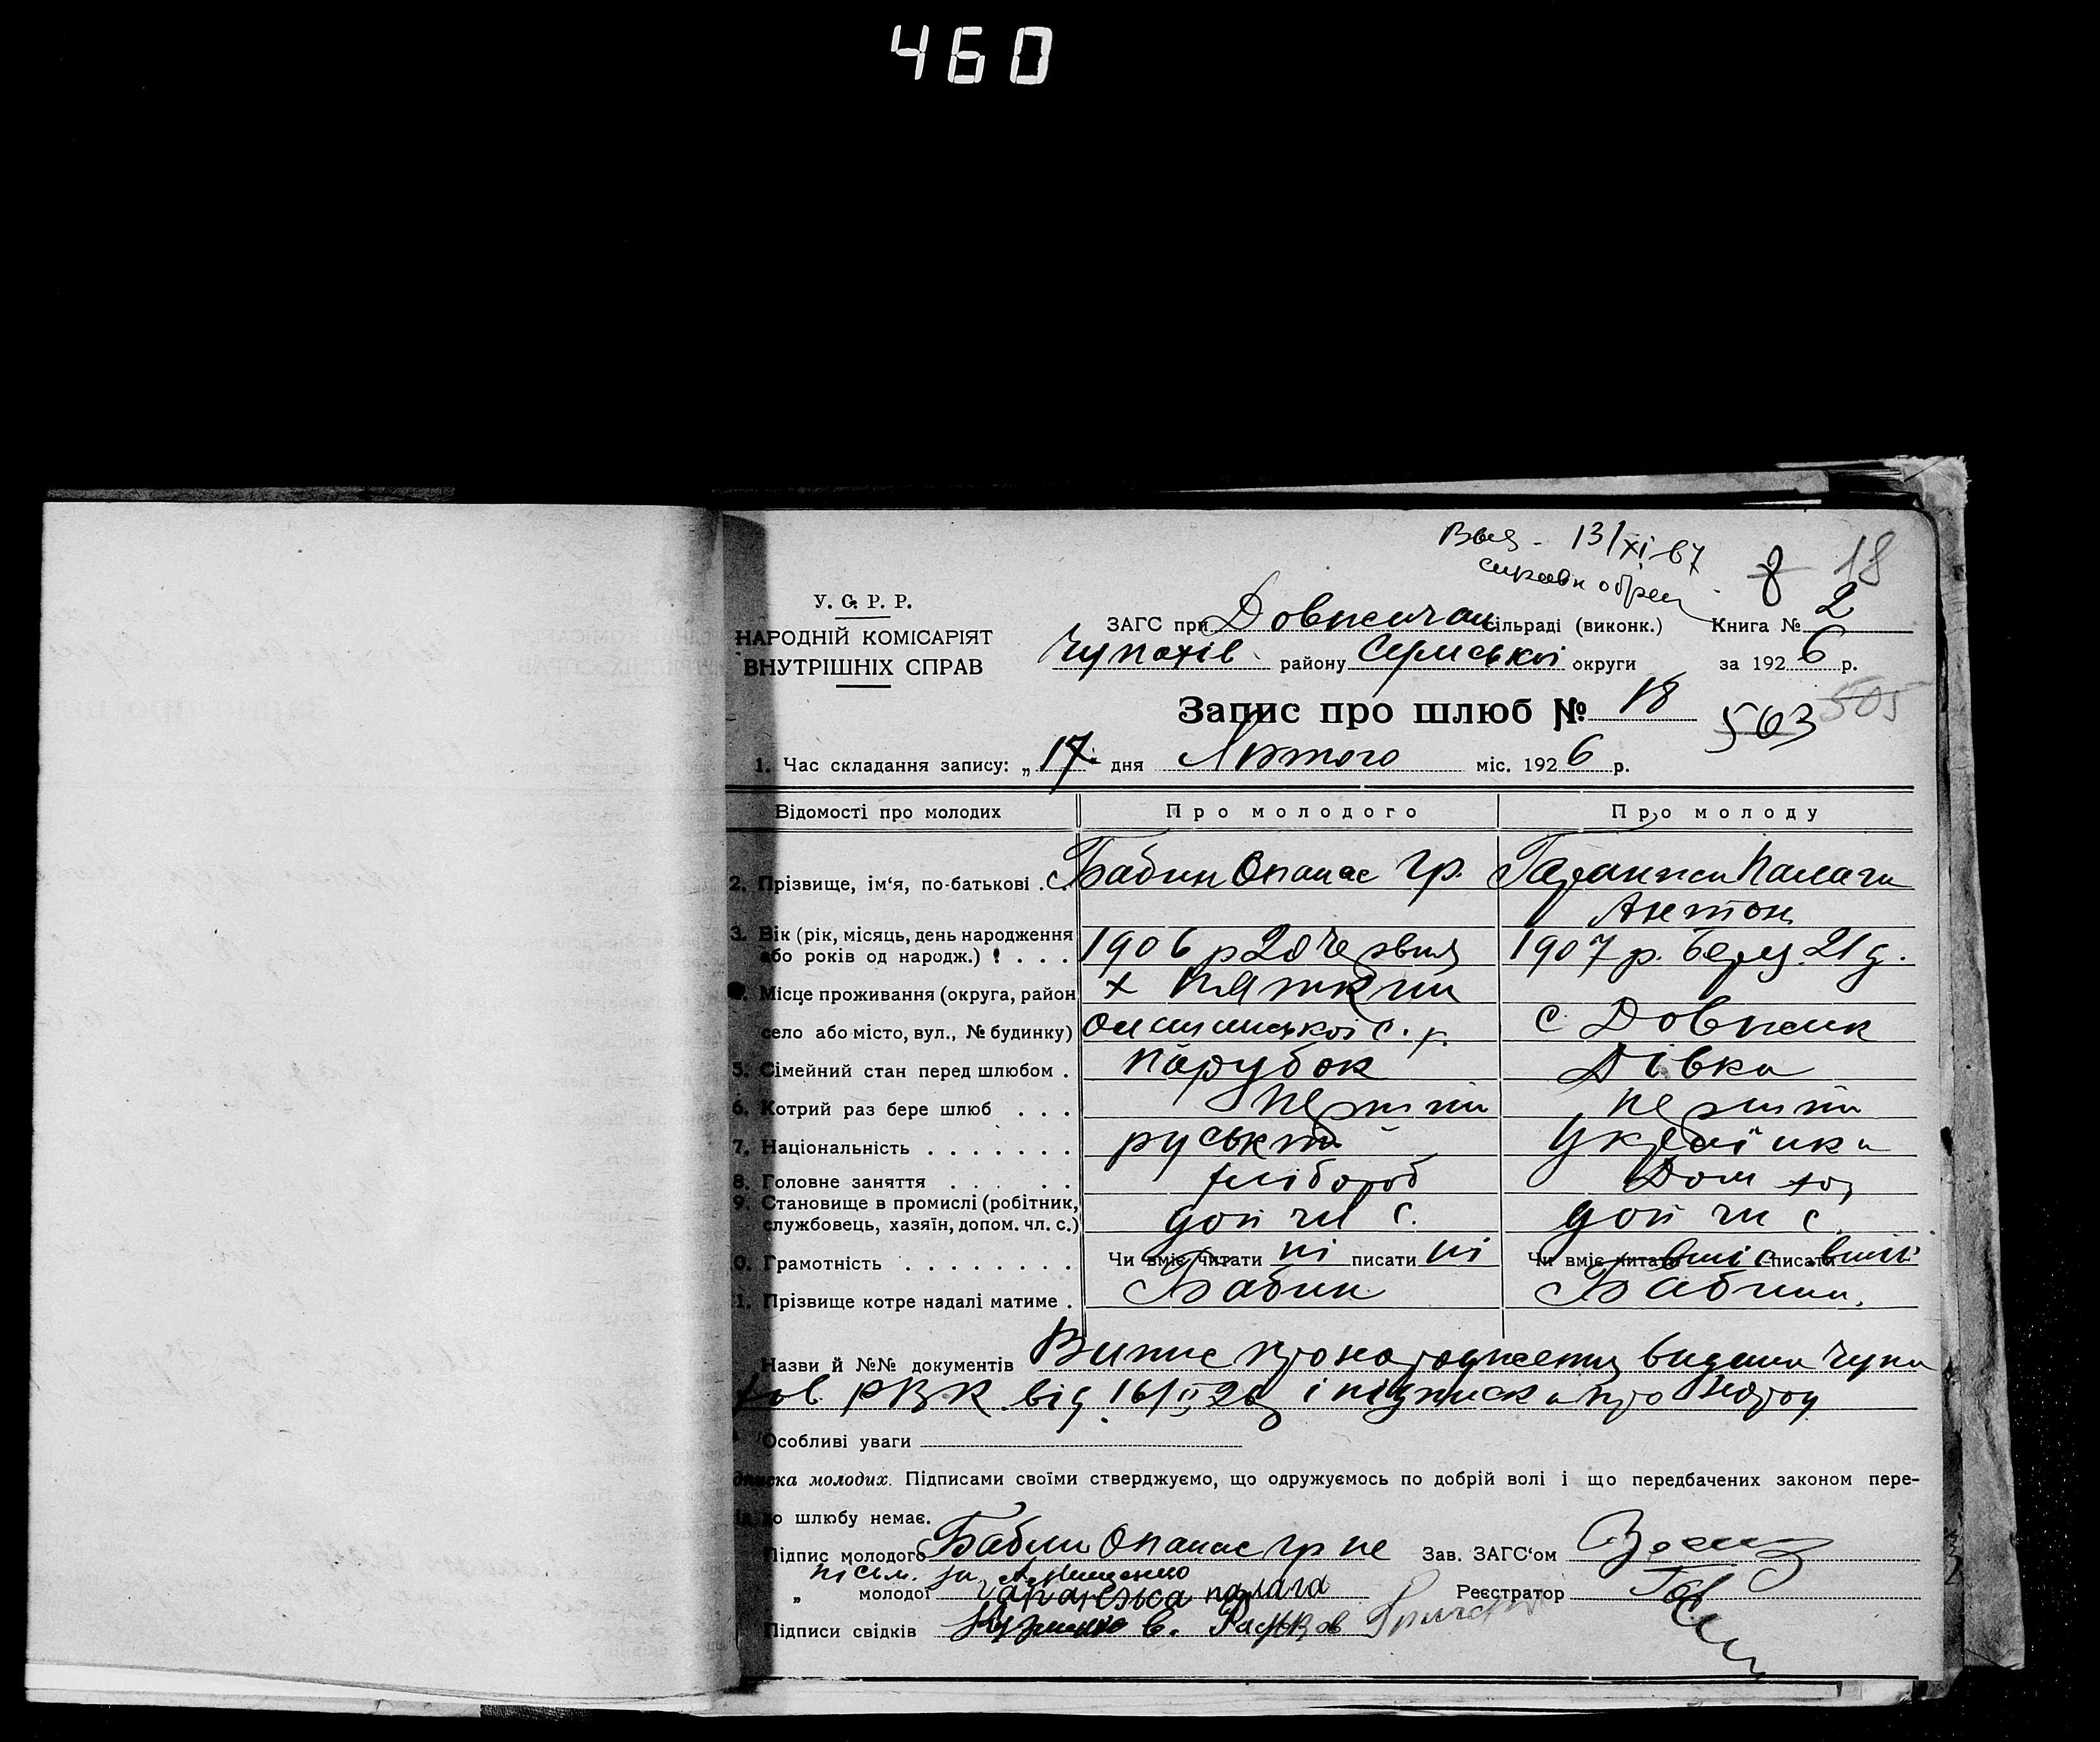 460
13/XI-67
8 18
У. С. Р. Р.
НАРОДНІЙ КОМІСАРІЯТ
ВНУТРІШНІХ СПРАВ
ЗАГС при Довжичан сільраді (виконк.) Книга № 2
Чупахів району Сумської округи за 1926 р.
Запис про шлюб № 18 503 505
1. Час складання запису: „17" дня Лютого міс. 1926 р.
Відомості про молодих Про молодого Про молоду
2. Прізвище, ім'я, по-батькові . Бабин Опанас Гр. Гаранжа Палага
Антон
3. Вік (рік, місяць, день народження 1906 р 20 Червня 1907 р. Берез. 21 д.
або років од народж.) ! . . .
Місце проживання (округа, район х Пяткин
село або місто, вул., № будинку) с. р. с Довжик
5. Сімейний стан перед шлюбом . Парубок Дівка
6. Котрий раз бере шлюб . . . перший перший
7. Національність . . . . . . . руський Українка
8. Головне заняття . . . . . хлібороб Дом гос
9. Становище в промислі (робітник,
службовець, хазяїн, допом. чл. с.) доп чл с. доп чл с.
0. Грамотність . . . . . . . . Чи вміє читати ні писати ні Чи вміє читати вміє писати вміє
1. Прізвище котре надалі матиме . Бабин Бабина.
Назви й №№ документів Випис про народження видана Чупа
хов. РВК від 16/II 26 і підписка про
Особливі уваги
дписка молодих. Підписами своїми стверджуємо, що одружуємось по добрій волі і що передбачених законом пере-
до шлюбу немає.
Підпис молодого Бабин Опанас Гр не Зав. ЗАГС'ом
письм. за А. Мищенко
„ молодої Гаранжа палага Реєстратор
Підписи свідків Кузменко В.